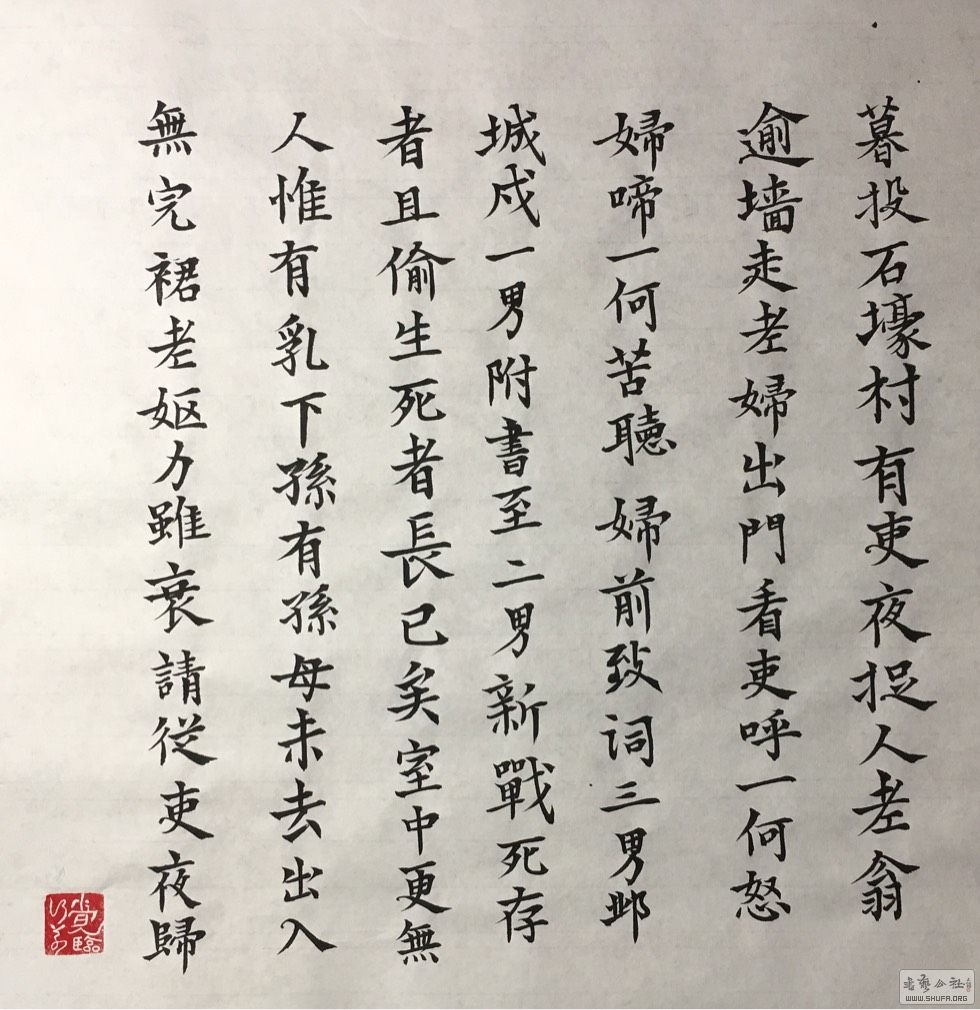 暮投石壕村有吏夜捉人老翁
逾墙走老婦出門看吏呼一何怒
婦啼一何苦聽婦前致词三男邺
城戍一男附書至二男新戰死存
者且偷生死者長已矣室中更無
人惟有乳下孫有孫母未去出入
無完裙老妪力雖衰請從吏夜歸
書藝公社
WWW.SHUFA.ORG